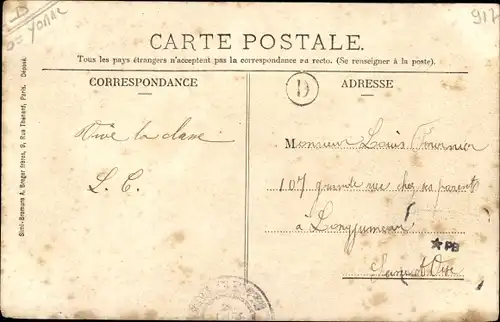 D
Yonne
917
CARTE POSTALE.
Tous les pays étrangers n'acceptent pas la correspondance au recto. (Se renseigner à la poste).
CORRESPONDANCE
D
ADRESSE
Vive la classe
L. C.
Monsieur Louis Fournier
107 grande rue chez ses parents
à Longjumeau
Seine et Oise
★PB
Simili-Bromure A. Breger frères, 9, Rue Thénard, Paris. Déposé.